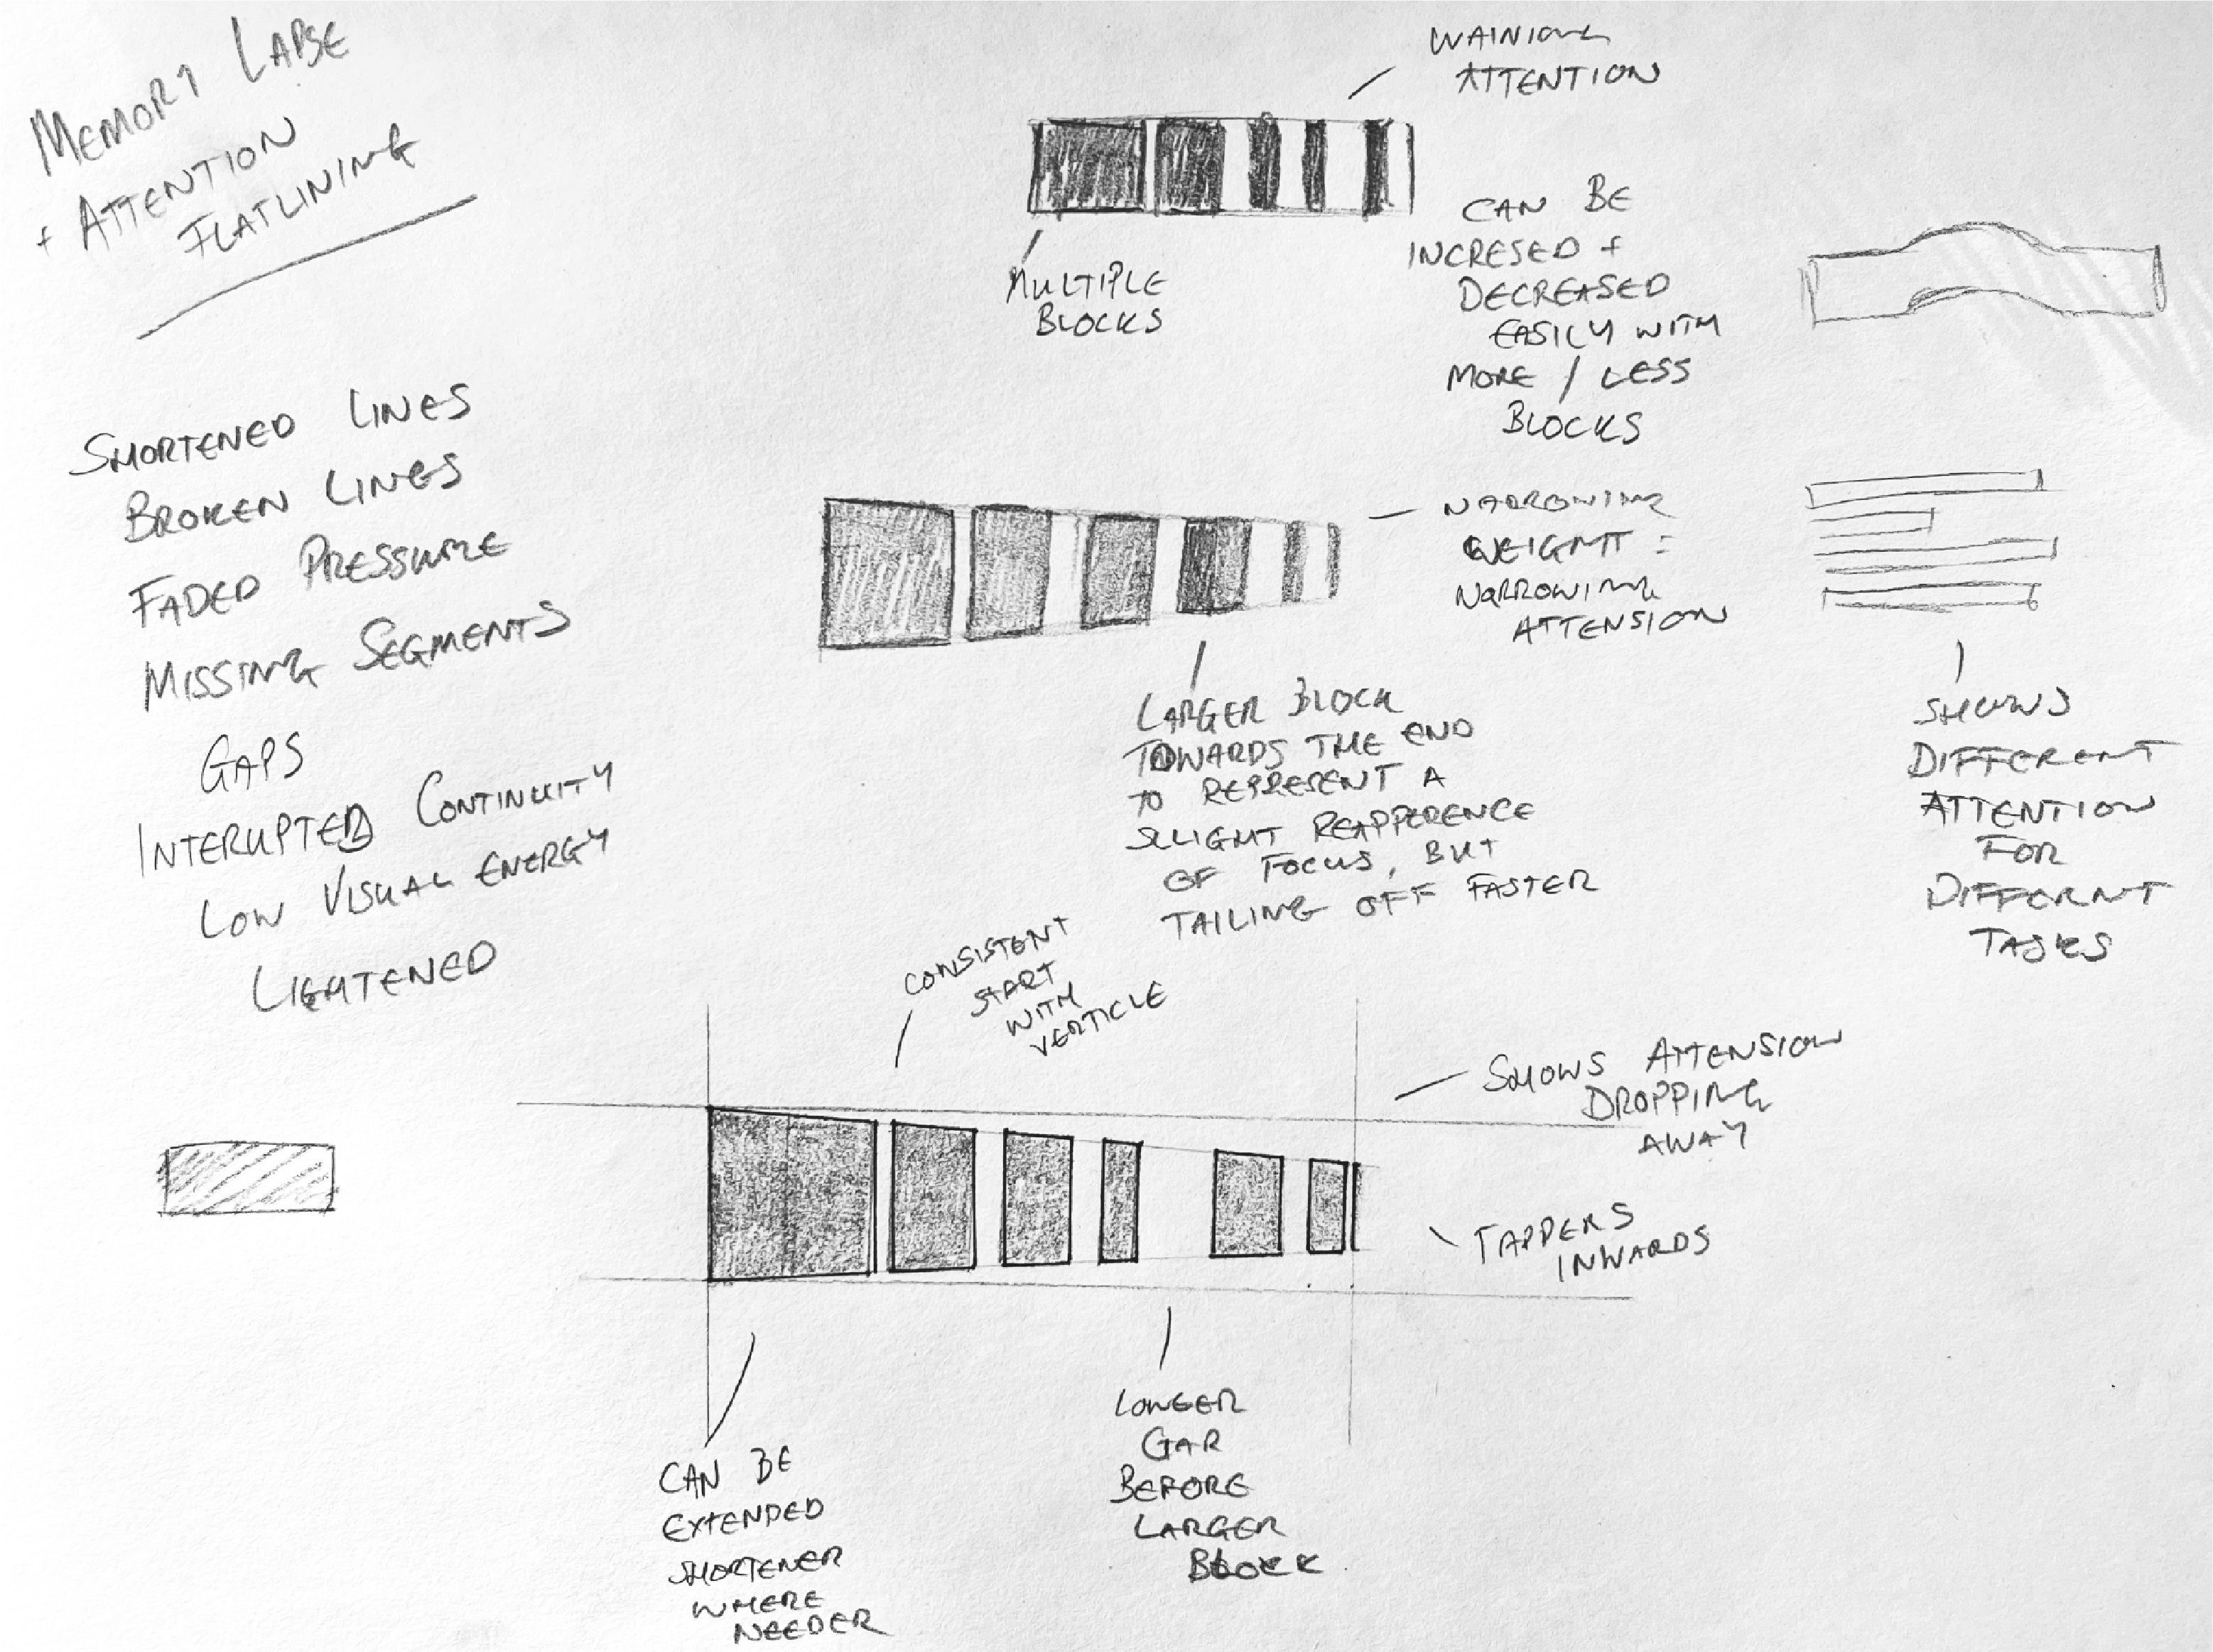 MEMORY LAPSE
+ ATTENTION
FLATLINING
SHORTENED LINES
BROKEN LINES
FADED PRESSURE
MISSING SEGMENTS
GAPS
INTERUPTED CONTINUITY
LOW VISUAL ENERGY
LIGHTENED
WAINIONG
ATTENTION
MULTIPLE
BLOCKS
CAN BE
INCRESED +
DECREASED
EASILY WITH
MORE / LESS
BLOCKS
NARROWING
WEIGHT =
NARROWING
ATTENSION
LARGER BLOCK
TOWARDS THE END
TO REPRESENT A
SLIGHT REAPPERENCE
OF FOCUS, BUT
TAILING OFF FASTER
SHOWS
DIFFERENT
ATTENTION
FOR
DIFFERNT
TASKS
CONSISTENT
START
WITH
VERTICLE
SHOWS ATTENSION
DROPPING
AWAY
TAPPERS
INWARDS
CAN BE
EXTENDED
SHORTENER
WHERE
NEEDER
LONGER
GAP
BEFORE
LARGER
BLOCK